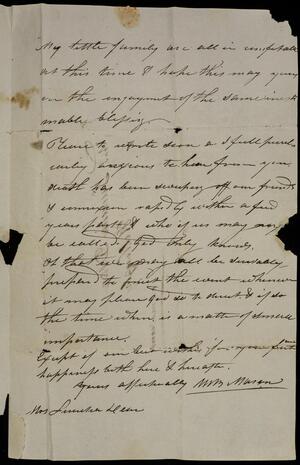 My little family are all in
at this time I hope this may
on the enjoyment of the same
mable blessing
Please to write soon as I full
early anxious to hear from you
death has been sweeping off our friends
& connexion rapidly within a few
years past & who of us may
be called God only knows.
O that we may all be
prepaird to meet the event whenever
it may please God so to direct & if so
the time when is a matter of small
importance.
Except of our best wishes for your
happiness both here & hereafter.
Yours affectionally Mason
Mrs